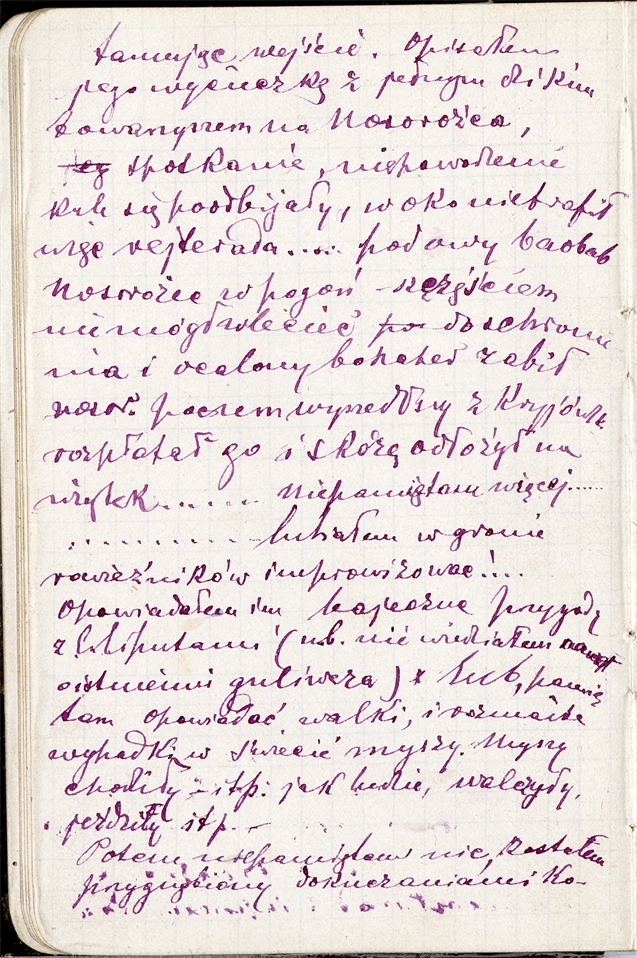 tamując wejście. Opisałem
jego wycieczkę z jednym dzikim
towarzyszem na Nosorożca,
jeg spotkanie, niepowodzenie
kule się poodbijały, w oko nie trafił
więc rejterada.... pod owy baobab
Nosorożec w pogoń - szczęściem
nie mógł wlecieć po do schronie
nia i ocalony bohater zabił
nosor. poczem wyszedłszy z Kryjówki
rozpłatał go i skórę odłożył na
użytek....... Niepamiętam więcej.....
........... lubiałem w gronie
rówieśników improwizować!...
Opowiadałem im bajeczne przygody
z liliputami (n.b. nie wiedziałem nawet
o istnieniu guliwera) lub, pamię
tam opowiadać walki, i rozmaite
wypadki w świecie myszy. Myszy
chodziły - itp. jak ludzie, walczyły,
jeździły itp. -
Potem niepamiętam nic, zostałem
przygnębiony dokuczaniami Ko-